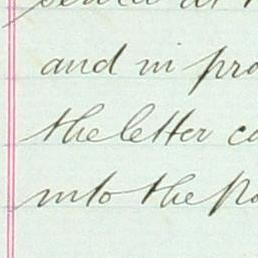 and in pro
the letter co
into the Po